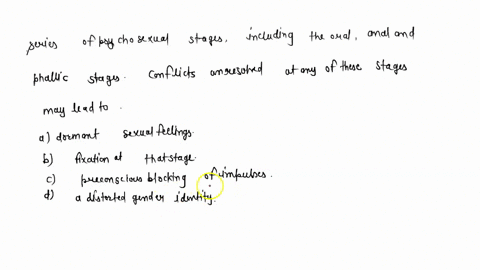 series of psychosexual stages, including the oral, anal and
phallic stages. Conflicts unresolved at any of these stages
may lead to.
a) dormant sexual feelings.
b) fixation at that stage.
c) preconscious blocking of impulses.
d) a distorted gender identity.